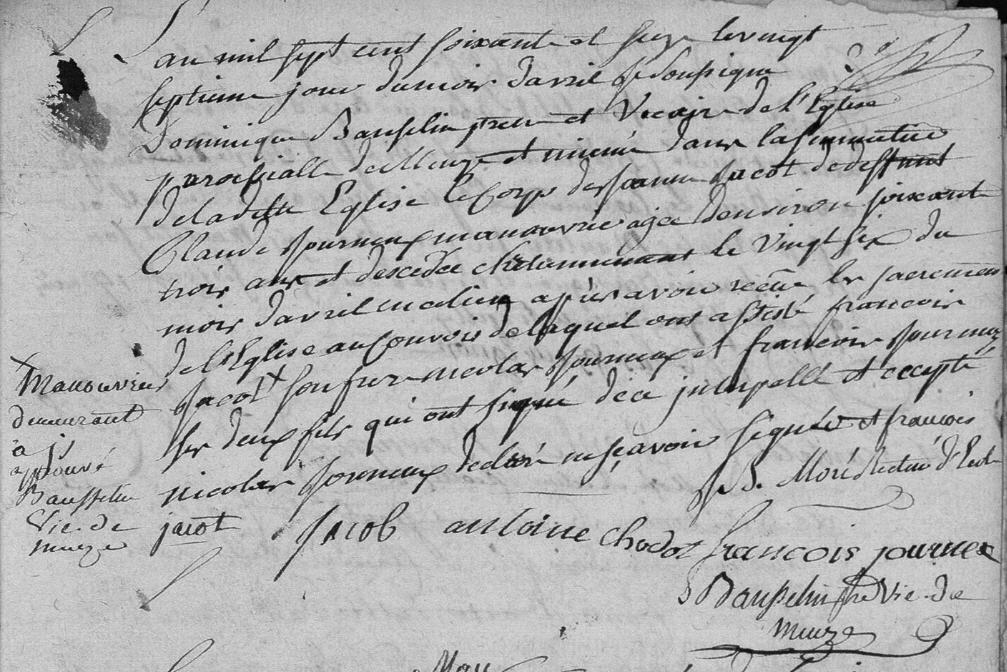 L'an mil sept cent soixante et seize le vingt
septieme jour du mois d'avril je soussigné
Dominique Bausselin pretre et Vicaire de l'Eglise
paroissialle de Meuze et inhumé dans la simmetiere
de la ditte Eglise le Corps de Jeanne Jacot de deffunt
Claude Journeux manouvrie agée d'environ soixante
trois ans et descedée chretiennement le vingt six du
mois d'avril apres avoir receue les sacremens
de l'Eglise au Convois de laquel ont assisté francois
Jacot + son frere nicolas Journeux et francois Journeux
ses deux fils qui ont signé de ce interpellé et excepté
nicolas Journeux declaré ne scavoir signer et francois
jacot
J B. Moré Recteur d'Ecole
+
Manouvrier
demeurant
à
approuvé
Bausselin
Vic. de
meuze
Jacob antoine Chodot francois journeux
Bausselin ptre Vic. de
Meuze